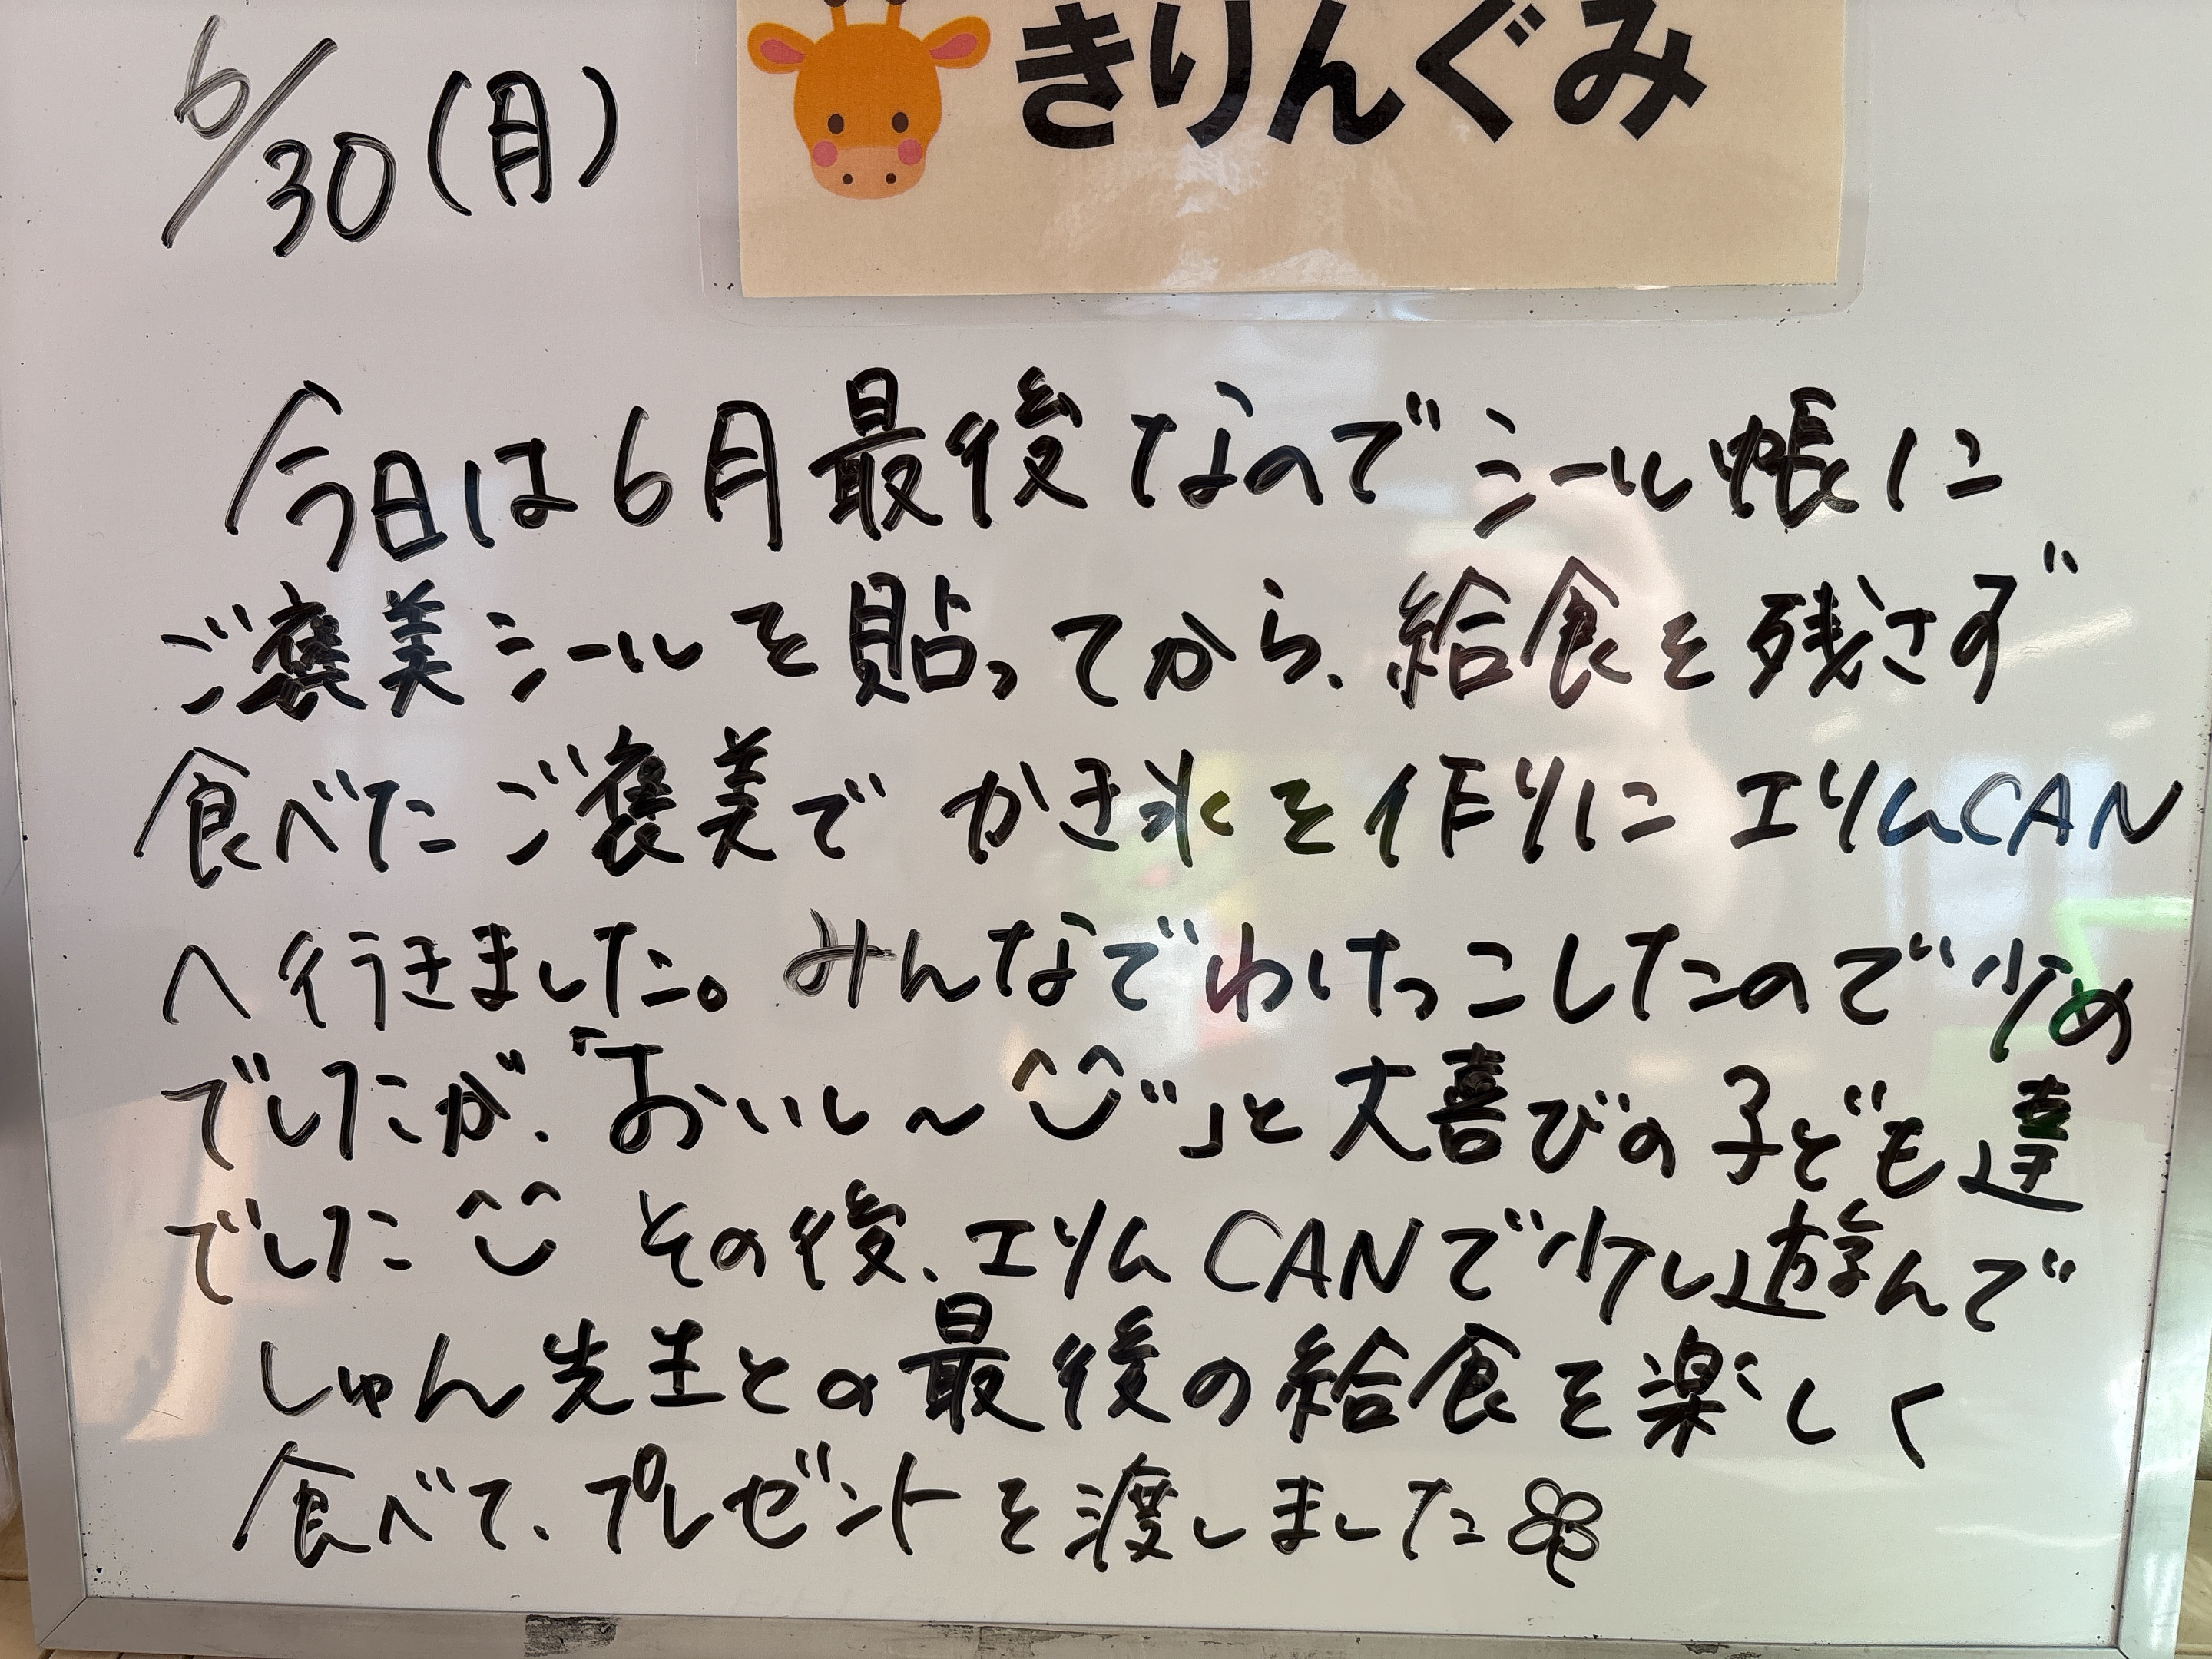 6/30(月)
きりんぐみ
今日は6月最後なのでシール帳に
ご褒美シールを貼ってから、給食を残さず
食べたご褒美でかき氷を作りにエリムCAN
へ行きました。みんなでわけっこしたので少め
でしたが、「おいし〜^^"」と大喜びの子ども達
でした^^ その後、エリムCANで少し遊んで
しゅん先生との最後の給食を楽しく
食べて、プレゼントを渡しました